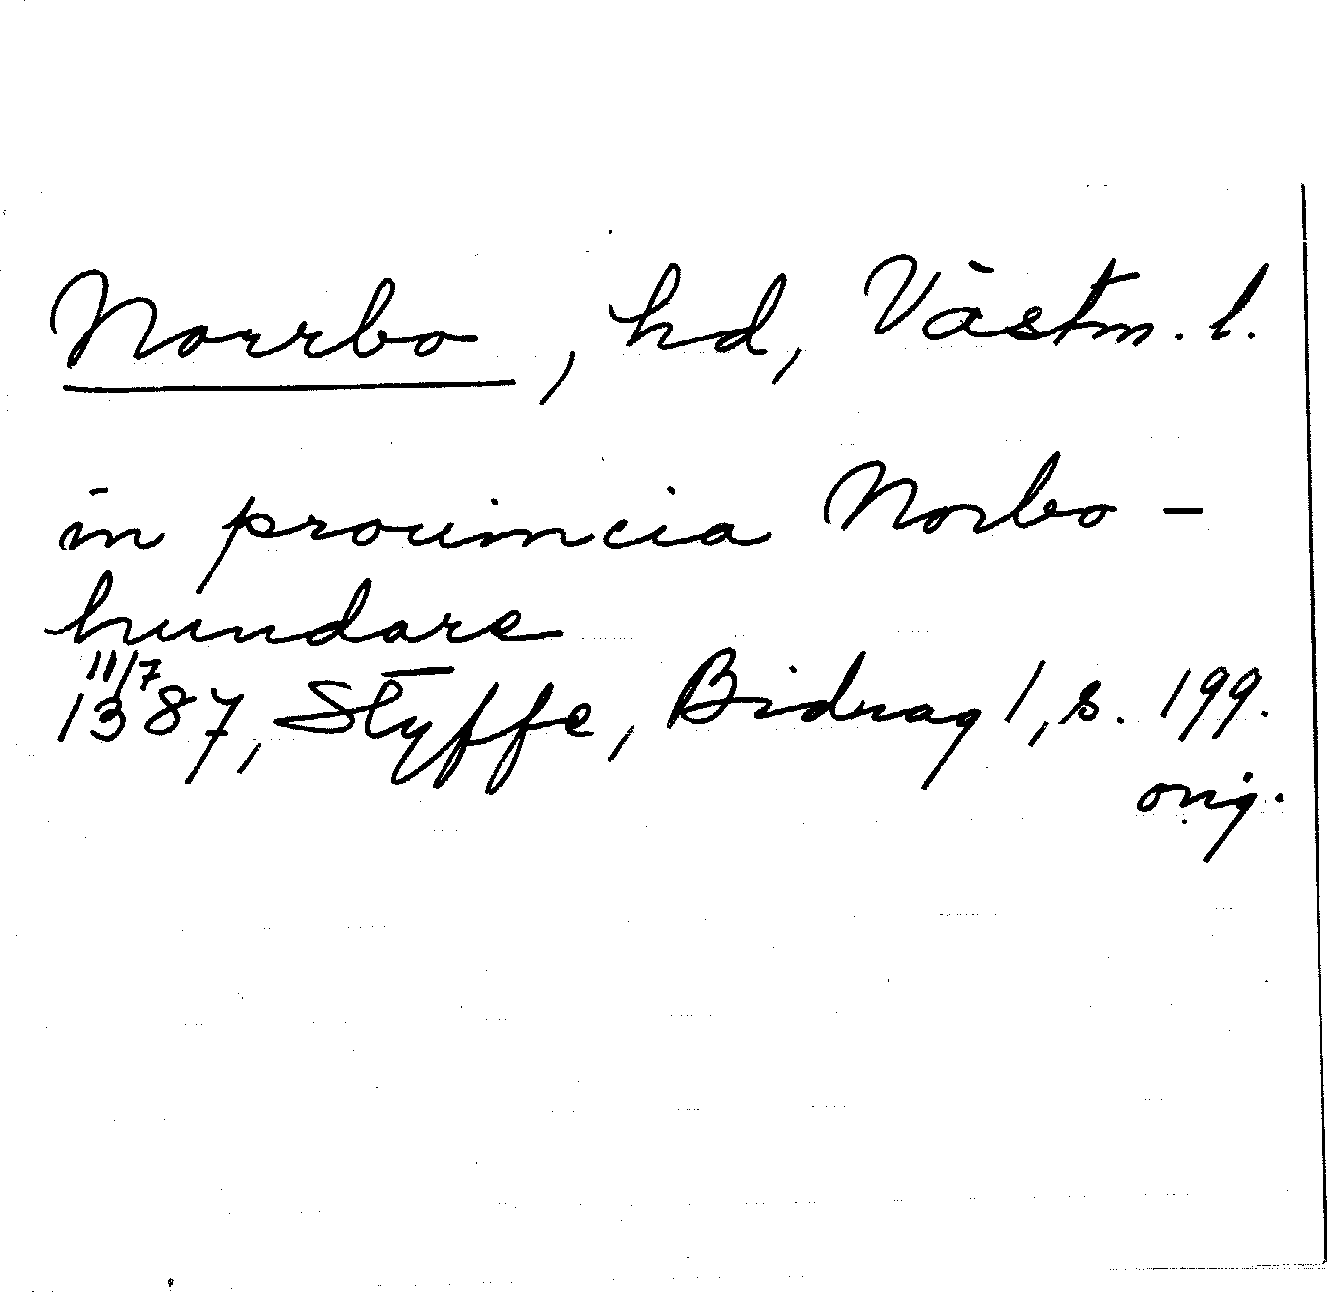 Norrbo, hd, Västm. l.
in prouincia Norbo-
hundare
11/7
1387, Styffe, Bidrag 1, s. 199.
orig.